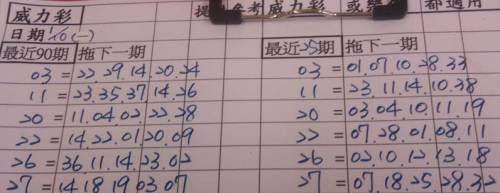 威力彩 提 參考 威力彩 或 都適用
日期 (一)
最近90期 拖下一期 最近25期 拖下一期
03 = 22.29.14.20.24 03 = 01.07.10.28.33
11 = 23.35.37.14.26 11 = 23.11.14.10.38
20 = 11.04.02.22.28 20 = 03.04.10.11.19
22 = 14.22.01.20.09 22 = 07.28.01.08.11
26 = 36.11.14.23.02 26 = 02.10.12.13.18
27 = 14.18.19.03.07 27 = 07.18.25.28.32